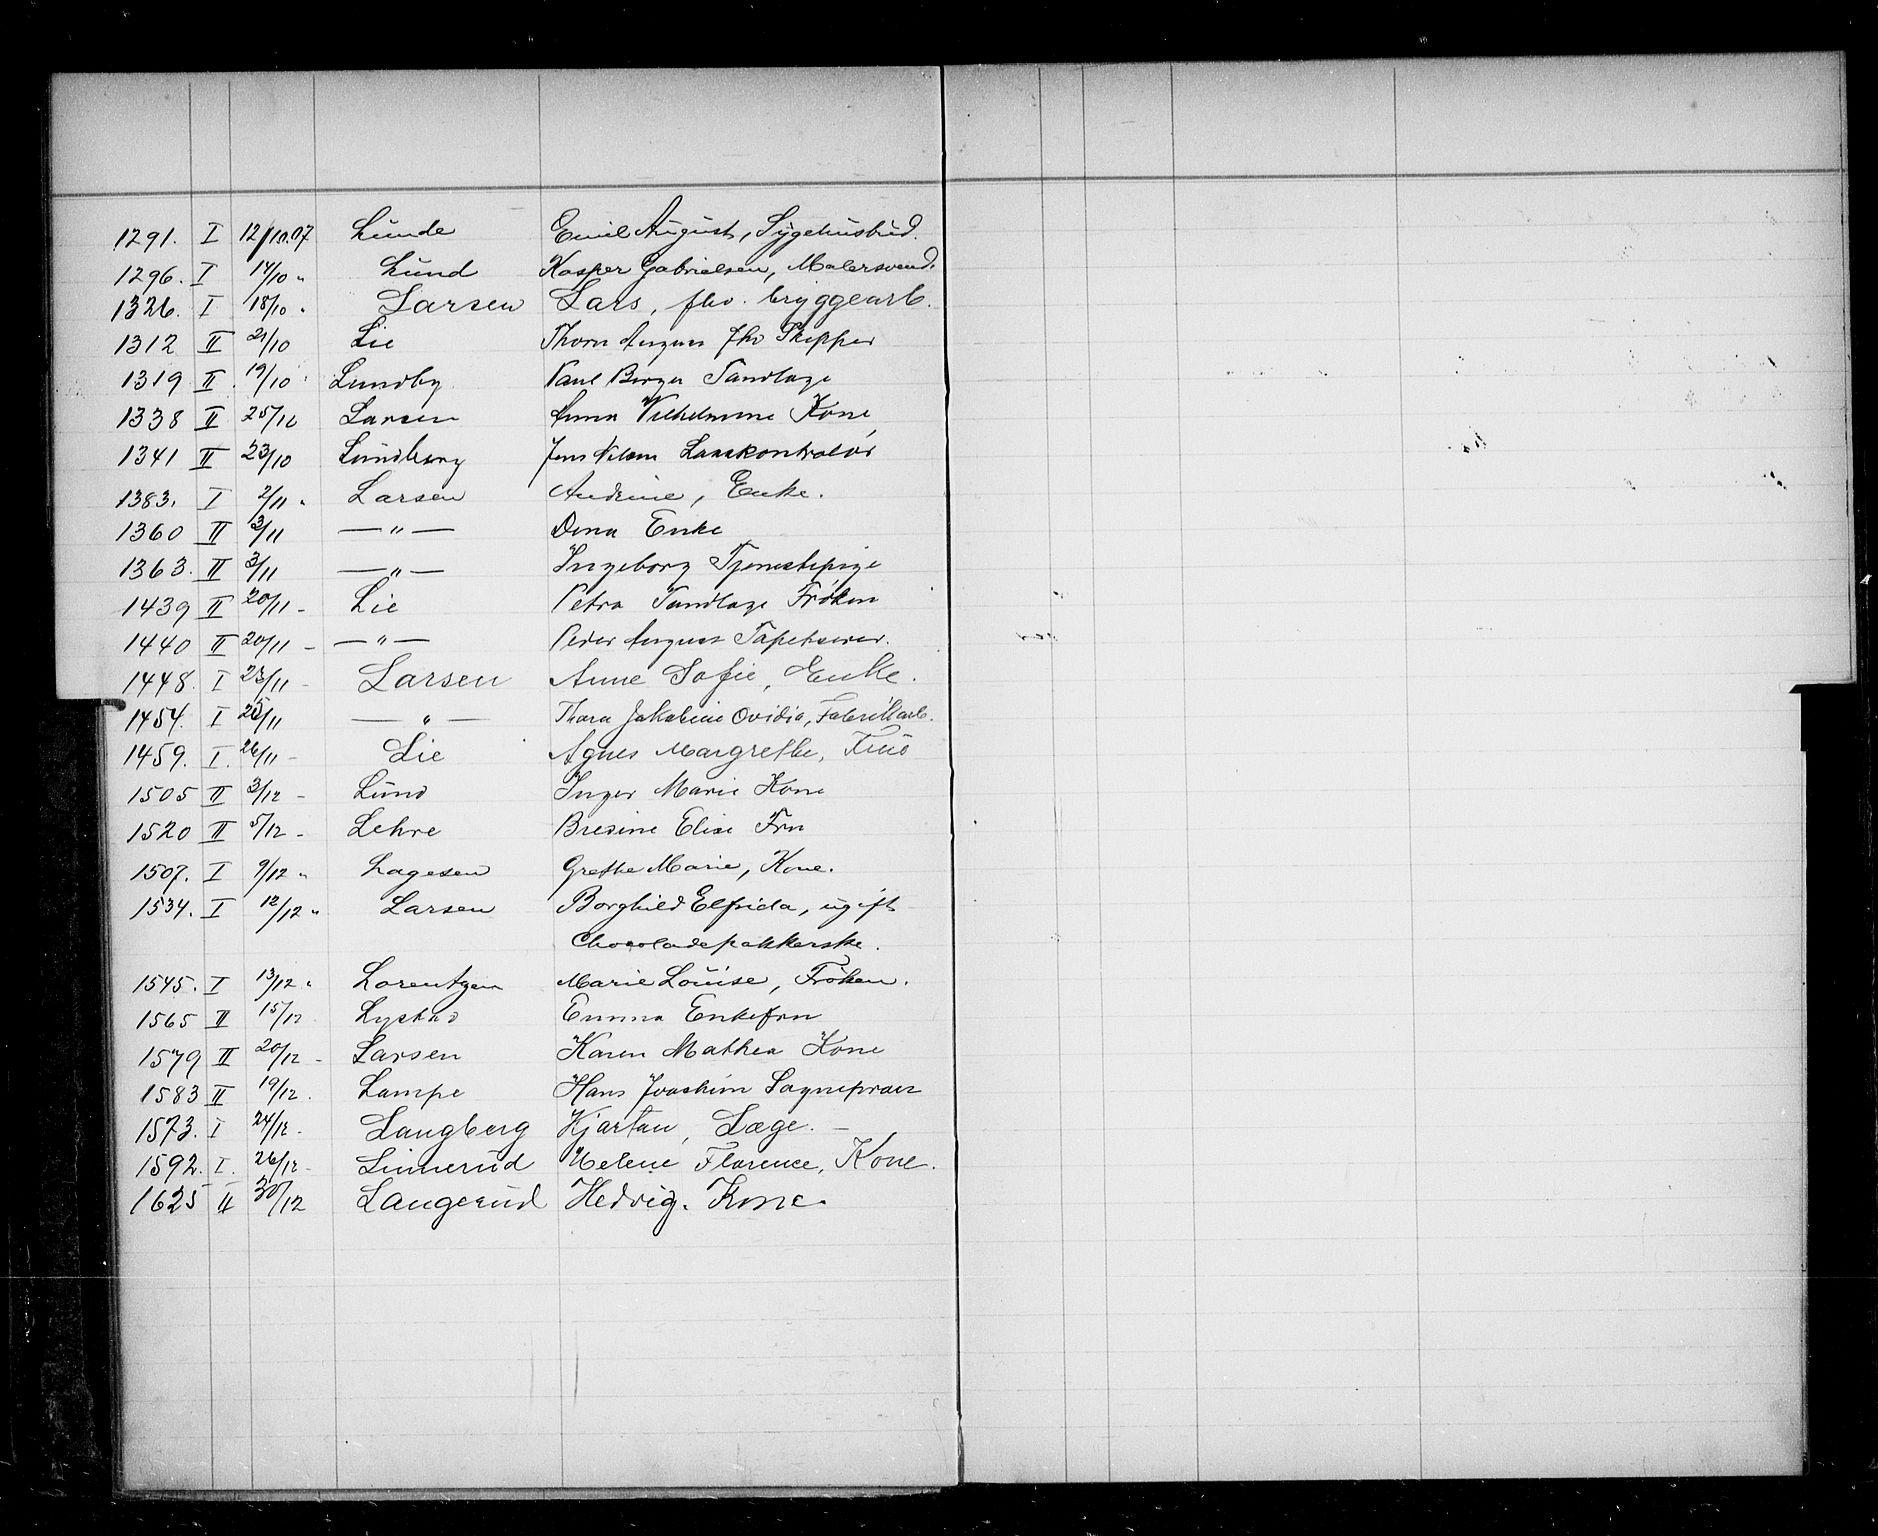 1291. I 12/10.07 Lunde Emil August, Sygehusbud.
1296. I 14/10 " Lund Kasper Gabrielsen, Malersvend.
1326. I 18/10 " Larsen Lars, fhv. bryggearb.
1312 II 21/10 Lie Thorv August fhv Skipper
1319 II 19/10 " Lundby Paul Berger Tandlæge
1338 II 25/10 Larsen Anna Vilhelmine Kone
1341 II 23/10 Lundberg Jens Nilsen Laasekontrolør
1383. I 2/11 " Larsen Andrine, Enke.
1360 II 3/11 — " — Dina Enke
1363. II 3/11 — " — Ingeborg Tjenestepige
1439 II 20/11 - Lie Petra Tandlæge Frøken
1440 II 20/11 - — " — Peder August Tapetserer.
1448. I 23/11 - Larsen Anne Sofie, Enke.
1454. I 25/11 — " — Thora Jakobine Ovidia, Fabrikarb.
1459. I. 26/11 - Lie Agnes Margrethe, Frue
1505 II 3/12 - Lund Inger Marie Kone
1520 II 5/12 - Lehre Bresine Elise Fru
1507. I 9/12 " Lagesen Grethe Marie, Kone.
1534. I 12/12 " Larsen Borghild Elfrida, ugift
Chocoladepakkerske.
1545. I 13/12 " Lorentzen Marie Louise, Frøken.
1565 II 15/12 Lystad Emma Enkefru
1579 II 20/12 - Larsen Karen Mathea Kone
1583 II 19/12. Lampe Hans Joachim Sogneprest
1573. I 24/12 - Langberg Kjartan, Læge. —
1592. I. 26/12 - Linnerud Helene Florence, Kone.
1625 II 30/12 Langerud Hedvig. Kone.